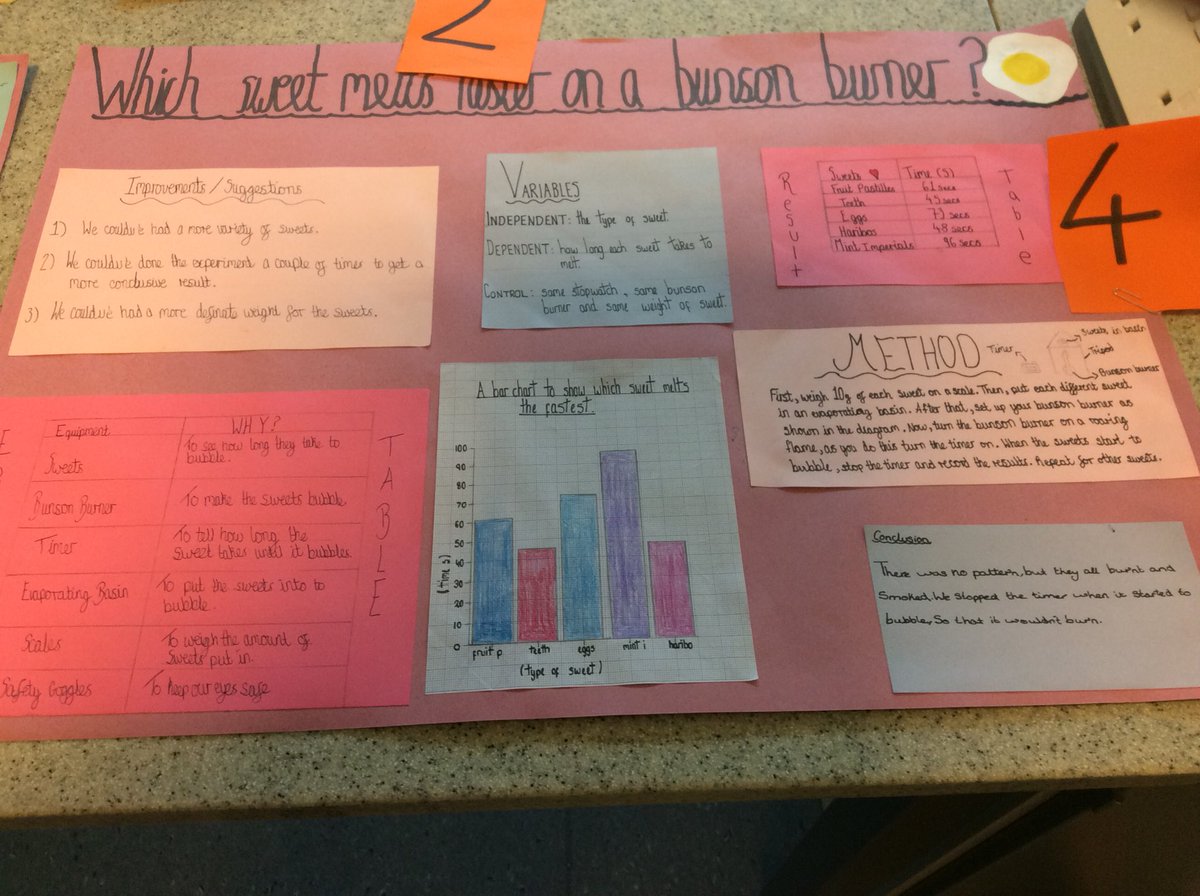 2
Which sweet melts faster on a bunson burner ?
4
Improvements / Suggestions
1) We couldv'e had a more variety of sweets.
2) We couldv'e done the experiment a couple of times to get a
more conclusive result.
3) We couldv'e had a more definate weight for the sweets.
VARIABLES
INDEPENDENT: the type of sweet.
DEPENDENT: how long each sweet takes to
melt.
CONTROL: same stopwatch, same bunson
burner and same weight of sweet.
Result
Sweets Time (s)
Fruit Pastilles 61 secs
Teeth 45 secs
Eggs 73 secs
Haribos 48 secs
Mint Imperials 96 secs
Table
METHOD
Timer
Sweets in basin
Tripod
Bunson burner
First, weigh 10g of each sweet on a scale. Then, put each different sweet
in an evaporating basin. After that, set up your bunson burner as
shown in the diagram. Now, turn the bunson burner on a roaring
flame, as you do this turn the timer on. When the sweets start to
bubble, stop the timer and record the results. Repeat for other sweets.
Equipment WHY?
Sweets To see how long they take to
bubble.
Bunson Burner To make the sweets bubble
Timer To tell how long the
sweet takes until it bubbles.
Evaporating Basin To put the sweets into to
bubble.
Scales To weigh the amount of
sweets put in.
Safety Goggles To keep our eyes safe
TABLE
A bar chart to show which sweet melts
the fastest.
100
90
80
70
60
50
40
30
20
10
0
(time s)
fruit p teeth eggs mint i haribo
(type of sweet)
Conclusion
There was no pattern, but they all burnt and
smoked. We stopped the timer when it started to
bubble, So that it wouldn't burn.